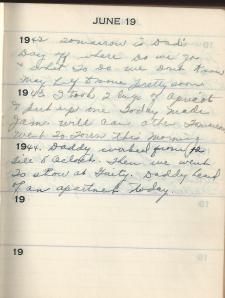 JUNE 19
1942 Tomorrow is Dad's
Day off where do we go
& what to do we don't know
may try to some pretty soon
1943 I took 2 lugs of Apricot
& put up one Today made
Jam will can other Tomorrow
went to Town this morning
1944. Daddy worked from 12
till 8 o'clock. Then we went
to show at Gaity. Daddy heard
of an apartment today.
19
19